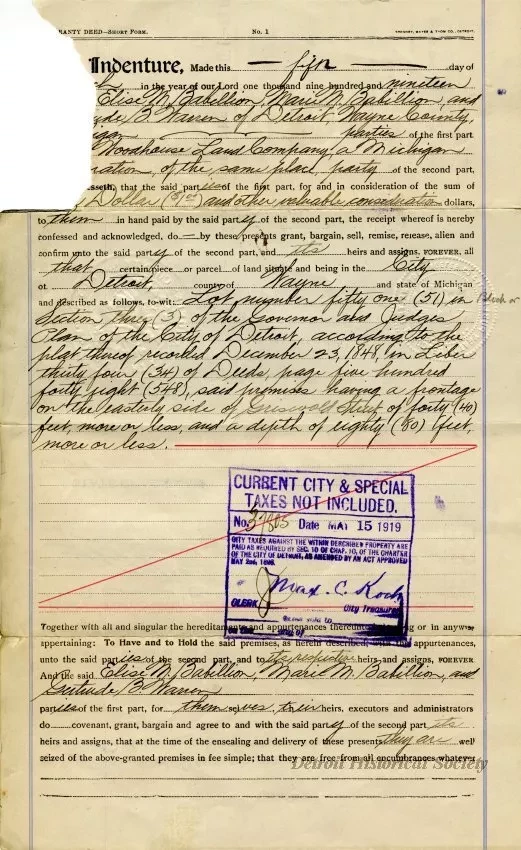 RANTY DEED—SHORT FORM. No. 1
Indenture, Made this fifth day of
in the year of our Lord one thousand nine hundred and nineteen
Elise M. Babillion, Marie M. Babillion, and
B. Warren of Detroit, Wayne County,
parties of the first part
Woodhouse Land Company, a Michigan
of the same place, party of the second part,
that the said parties of the first part, for and in consideration of the sum of
Dollar ($1.00) and other valuable consideration dollars,
to them in hand paid by the said party of the second part, the receipt whereof is hereby
confessed and acknowledged, do by these presents grant, bargain, sell, remise, release, alien and
confirm unto the said party of the second part, and its heirs and assigns, FOREVER, all
that certain piece or parcel of land situate and being in the City
of Detroit, county of Wayne and state of Michigan
and described as follows, to-wit: Lot number fifty one (51) in
Section three (3) of the Governor and Judges
Plan of the City of Detroit, according to the
plat thereof recorded December 23, 1848, in Liber
thirty four (34) of Deeds, page five hundred
forty eight (548), said premises having a frontage
on the easterly side of Griswold Street of forty (40)
feet, more or less, and a depth of eighty (80) feet,
more or less.
CURRENT CITY & SPECIAL
TAXES NOT INCLUDED.
No. Date MAY 15 1919
CITY TAXES AGAINST THE WITHIN DESCRIBED PROPERTY ARE
PAID AS REQUIRED BY SEC. 10 OF CHAP. 10, OF THE CHARTER
OF THE CITY OF DETROIT, AS AMENDED BY AN ACT APPROVED
Max. C. Koch
CLERK City Treasurer
Together with all and singular the hereditaments and appurtenances or in anywise
appertaining: To Have and to Hold the said premises, as herein described, appurtenances,
unto the said part of the second part, and to its respective heirs and assigns, FOREVER
And the said Elise M. Babillion, Marie M. Babillion, and
Gertrude B. Warren
parties of the first part, for themselves, their heirs, executors and administrators
do covenant, grant, bargain and agree to and with the said party of the second part its
heirs and assigns, that at the time of the ensealing and delivery of these presents they are well
seized of the above-granted premises in fee simple; that they are free from all encumbrances whatever
Detroit Historical Society